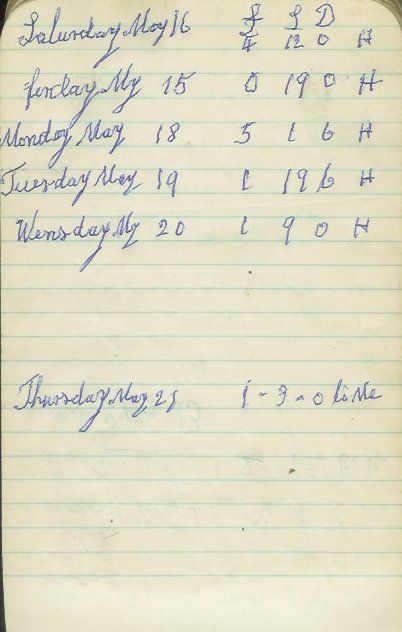 Saturday May 16 £ S D
4 12 0 H
Firday My 15 0 19 0 H
Monday May 18 5 1 6 H
Tuesday May 19 1 19 6 H
Wensday My 20 1 9 0 H
Thursday May 21 1 - 3 - 0